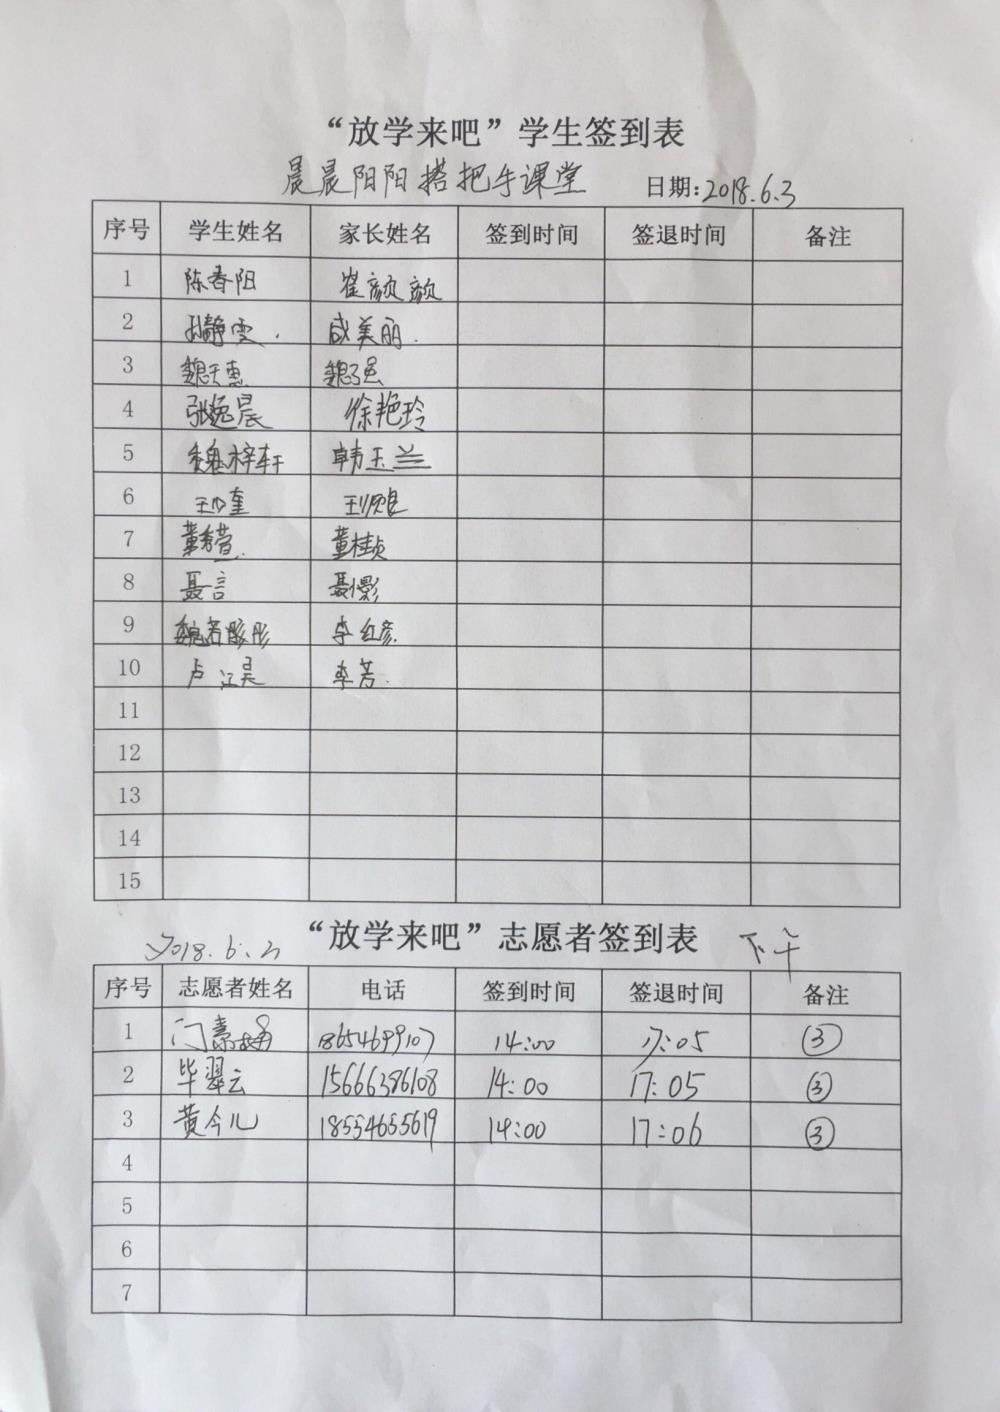 “放学来吧”学生签到表
晨晨阳阳搭把手课堂 日期:2018.6.3
序号 学生姓名 家长姓名 签到时间 签退时间 备注
1 陈春阳 崔颜颜
2 孙静雯. 咸美丽.
3 魏天惠
4 张逸晨 徐艳玲
5 魏梓轩 韩玉兰
6
7 董秀萱. 董桂贞
8 聂言 聂影
9 李红彦
10 卢江昊 李芳.
11
12
13
14
15
“放学来吧”志愿者签到表
2018.6.2 下午
序号 志愿者姓名 电话 签到时间 签退时间 备注
1 18654699107 14:00 17:05 ③
2 毕翠云 15666386108 14:00 17:05 ③
3 黄今儿 18554655619 14:00 17:06 ③
4
5
6
7